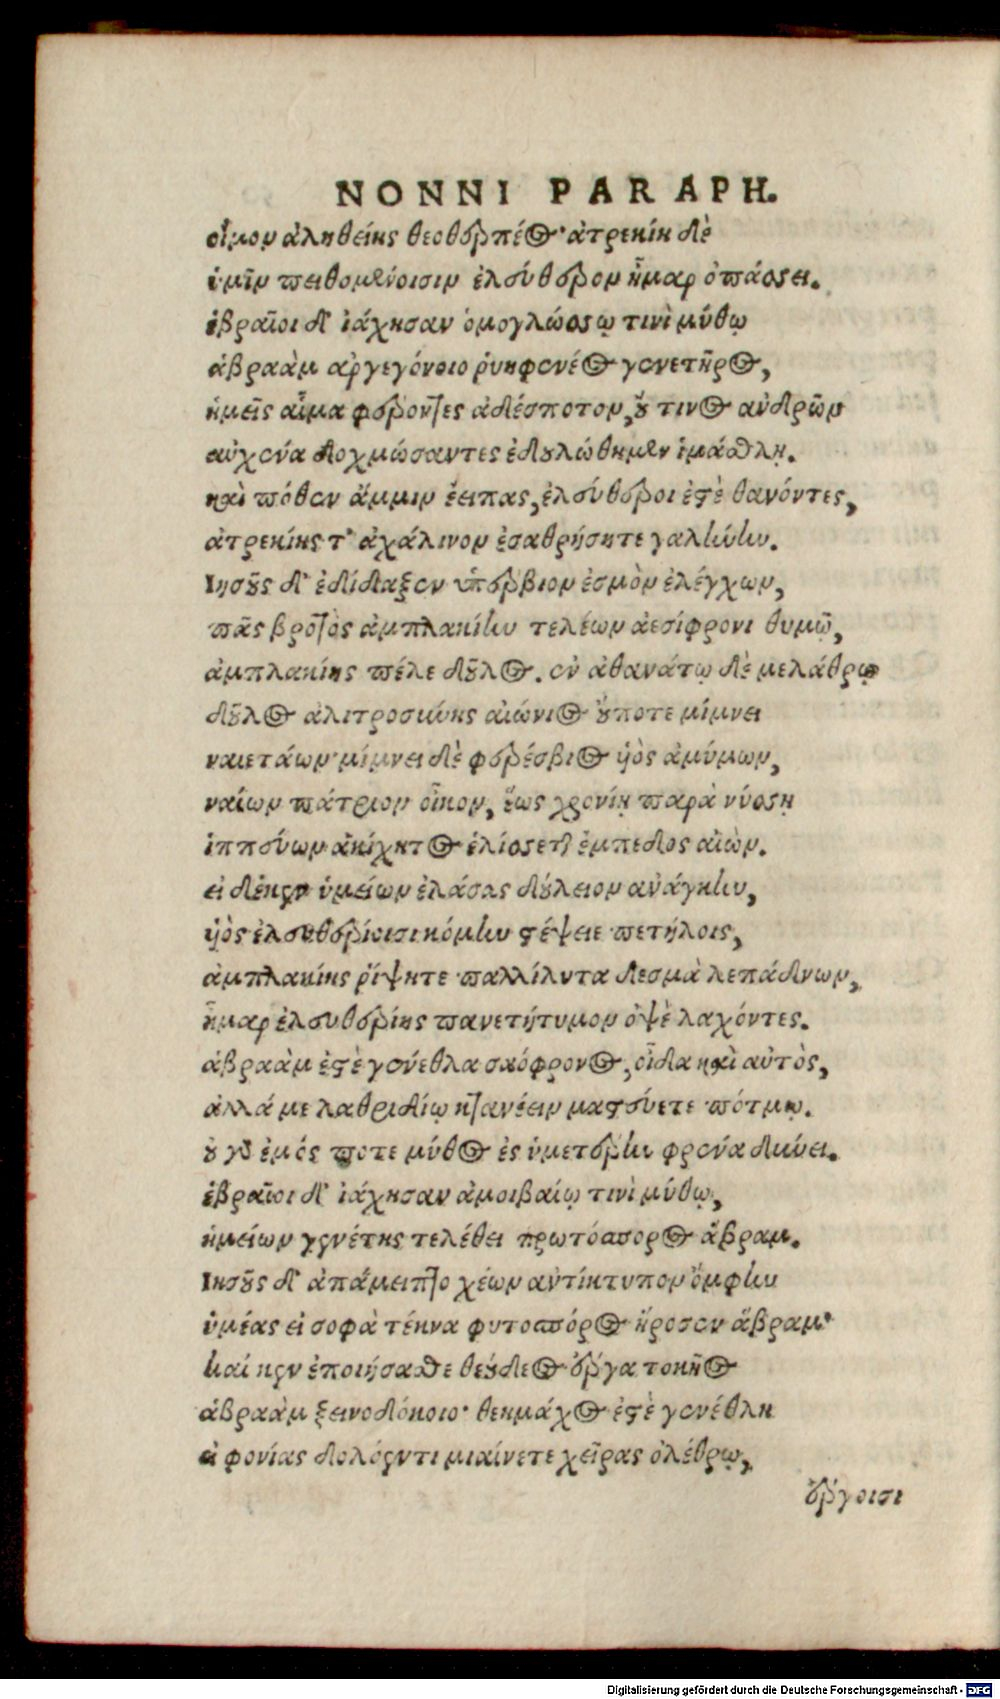 NONNI PARAPH.
οἶμον ἀληθείης θεοθερπέος· ἀτρεκίη δὲ
ὑμῖν πειθομένοισιν ἐλεύθερον ἦμαρ ὀπάσσει.
ἑβραῖοι δ' ἰάχησαν ὁμογλώσσῳ τινὶ μύθῳ
ἀβραὰμ ἀρχεγόνοιο ῥυηφενέος γενετῆρος,
ἡμεῖς αἷμα φέροντες ἀδέσποτον, οὔ τινος ἀνδρῶν
αὐχένα δοχμώσαντες ἐδουλώθημεν ἱμάσθλῃ.
καὶ πόθεν ἄμμιν ἔειπας, ἐλεύθεροι ἐστὲ θανόντες,
ἀτρεκίης τ' ἀχάλινον ἐσαθρήσητε γαλήνην.
Ἰησοῦς δ' ἐδίδαξεν ὑπέρβιον ἑσμὸν ἐλέγχων,
πᾶς βροτὸς ἀμπλακίην τελέων ἀεσίφρονι θυμῷ,
ἀμπλακίης πέλε δοῦλος. ἐν ἀθανάτῳ δὲ μελάθρῳ
δοῦλος ἀλιτροσύνης αἰώνιος οὔποτε μίμνει
ναιετάων· μίμνει δὲ φερέσβιος υἱὸς ἀμύμων,
ναίων πάτριον οἶκον, ἕως χρονίῃ παρὰ νύσσῃ
ἱππεύων ἀκίχητος ἑλίσσεται ἔμπεδος αἰών.
εἰ δέ κεν ὑμείων ἐλάσας δούλειον ἀνάγκην,
υἱὸς ἐλευθερίοισι κόμην στέψειε πετήλοις,
ἀμπλακίης ῥίψητε παλλίλυτα δεσμὰ λεπάδνων,
ἦμαρ ἐλευθερίης πανετήτυμον ὀψὲ λαχόντες.
ἀβραὰμ ἐστὲ γένεθλα σαόφρονος, οἶδα καὶ αὐτὸς,
ἀλλά με λαθριδίῳ κτανέειν μαστεύετε πότμῳ.
οὐ γὰρ ἐμός ποτε μῦθος ἐς ὑμετέρην φρένα δύνει.
ἑβραῖοι δ' ἰάχησαν ἀμοιβαίῳ τινὶ μύθῳ,
ἡμείων γενέτης τελέθει πρωτόσπορος ἄβραμ.
Ἰησοῦς δ' ἀπάμειπτο χέων ἀντίκτυπον ὀμφὴν
ὑμέας εἰ σοφὰ τέκνα φυτοσπόρος ἤροσεν ἄβραμ·
καί κεν ἐποιήσασθε θεουδέος ἔργα τοκῆος
ἀβραὰμ ξεινοδόκοιο· θεημάχος ἐστὲ γενέθλη
εἰ φονίας δολόεντι μιαίνετε χεῖρας ὀλέθρῳ,
ἔργοισι
Digitalisierung gefördert durch die Deutsche Forschungsgemeinschaft - DFG